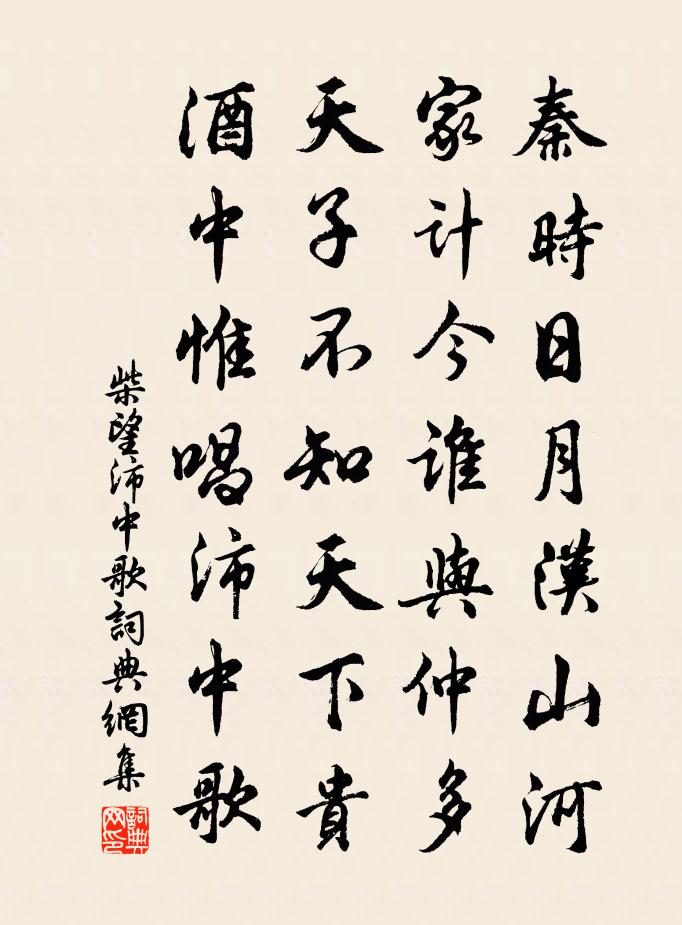 秦時日月漢山河
家計今誰與仲多
天子不知天下貴
酒中惟唱沛中歌
柴望沛中歌詞典網集
詞典网印